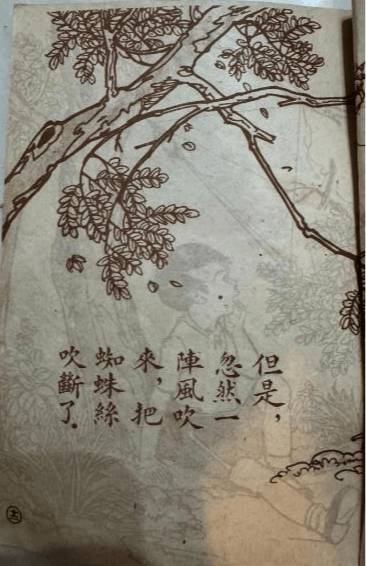 但是，
忽然一
陣風吹
來，把
蜘蛛絲
吹斷了．